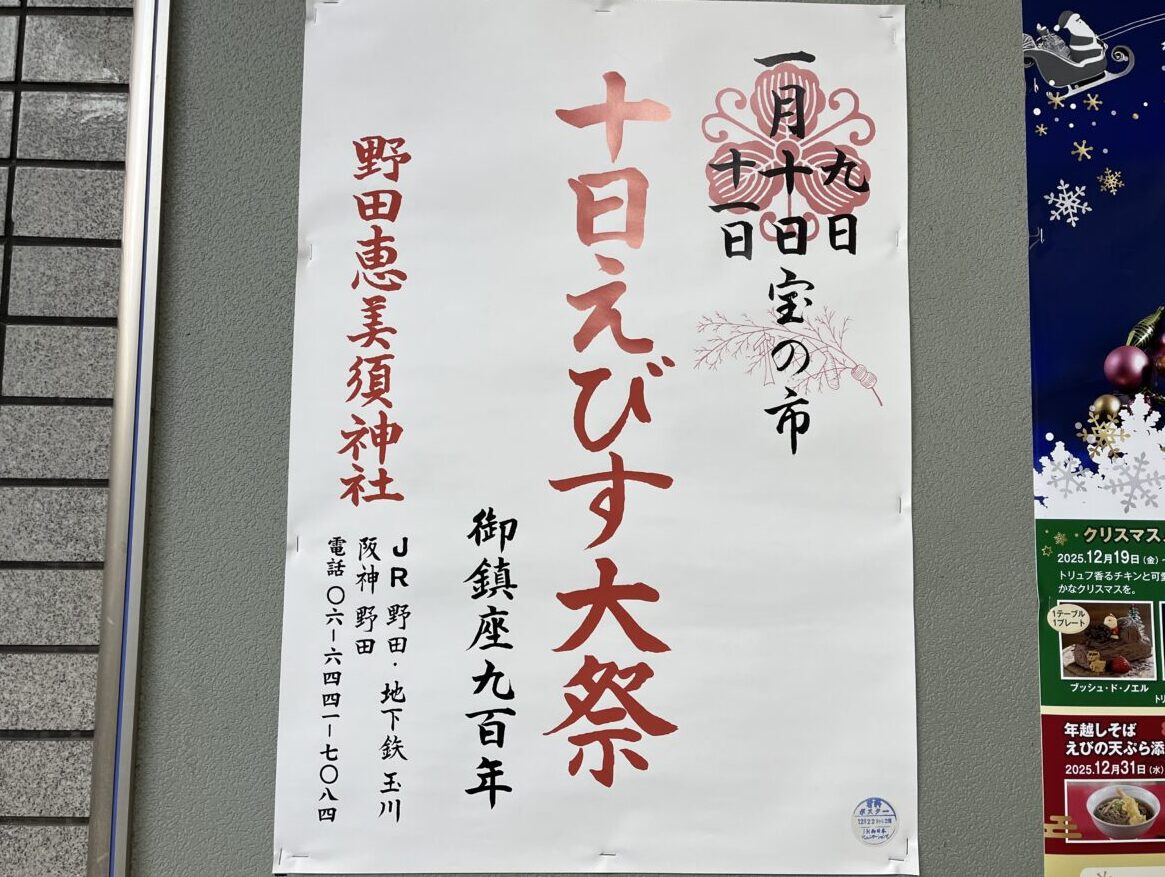 一月
九日
十日
十一日
宝の市
十日えびす大祭
御鎮座九百年
野田恵美須神社
JR野田・地下鉄玉川
阪神野田
電話〇六-六四四一-七〇八四
ポスター
クリスマス
2025.12月19日(金)
トリュフ香るチキンと可愛
かなクリスマスを。
1テーブル
1プレート
ブッシュ・ド・ノエル
年越しそば
えびの天ぷら添
2025.12月31日(水)